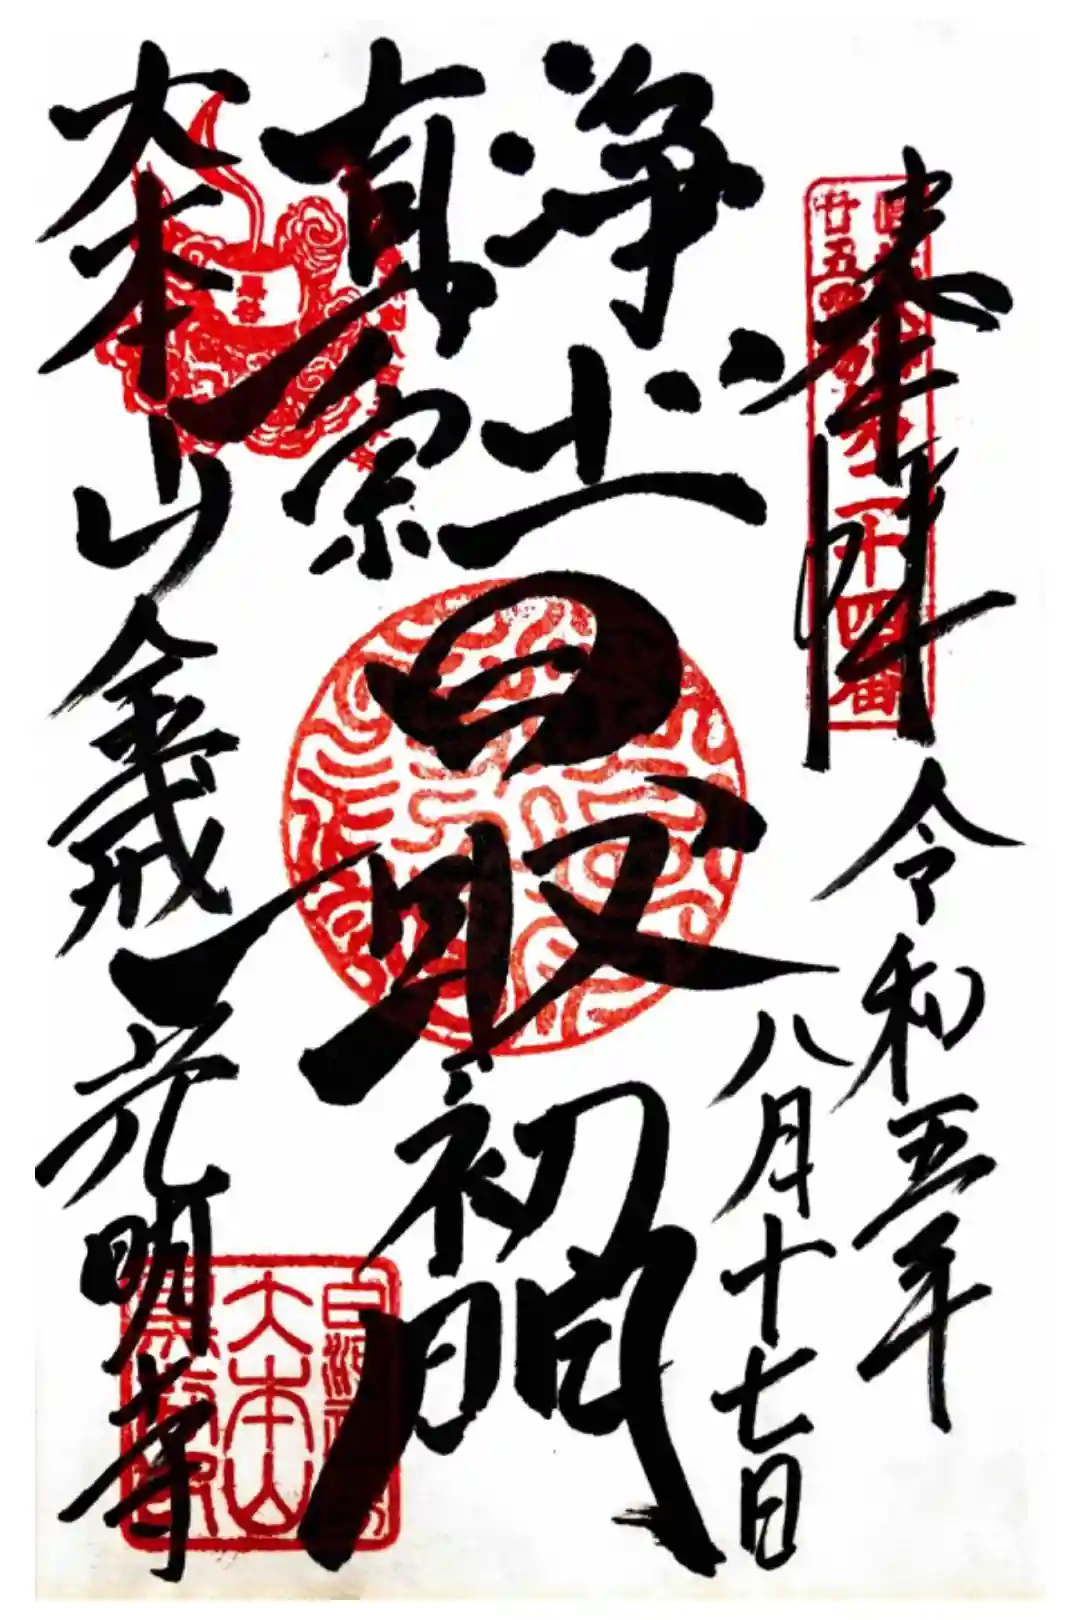 奉拝
令和五年
八月十七日
浄土
真宗
最初門
大本山金戒光明寺
二十四番
廿五
大本山